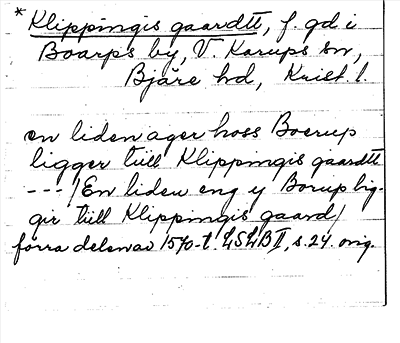 * Klippingis gaardtt, f. gd i
Boarps by, V. Karups sn,
Bjäre hd, Krist l.
en liden ager hoss Boerup
ligger tiill Klippingis gaardtt
---/En liden eng y Borup lig-
gir tiill Klippingis gaard/
förra delen av 1570-t. LSLB II, s. 24. orig.